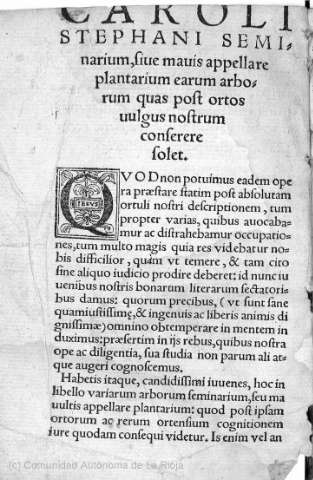 CAROLI
STEPHANI SEMI-
narium, siue mauis appellare
plantarium earum arbo-
rum quas post ortos
uulgus nostrum
conserere
solet.
QVOD non potuimus eadem ope
ra præstare statim post absolutam
ortuli nostri descriptionem, tum
propter varias, quibus auocaba-
mur ac distrahebamur occupatio-
nes, tum multo magis quia res videbatur no-
bis difficilior, quàm vt temere, & tam cito
sine aliquo iudicio prodire deberet: id nunc iu
uenibus nostris bonarum literarum sectatori-
bus damus: quorum precibus, (vt sunt sane
quamiustissimę, & ingenuis ac liberis animis di
gnissimæ) omnino obtemperare in mentem in
duximus: præsertim in ijs rebus, quibus nostra
ope ac diligentia, sua studia non parum ali at-
que augeri cognoscemus.
Habetis itaque, candidissimi iuuenes, hoc in
libello variarum arborum seminarium, seu ma
uultis appellare plantarium: quod post ipsam
ortorum ac rerum ortensium cognitionem
iure quodam consequi videtur. Is enim vel an
(c) Comunidad Autónoma de La Rioja